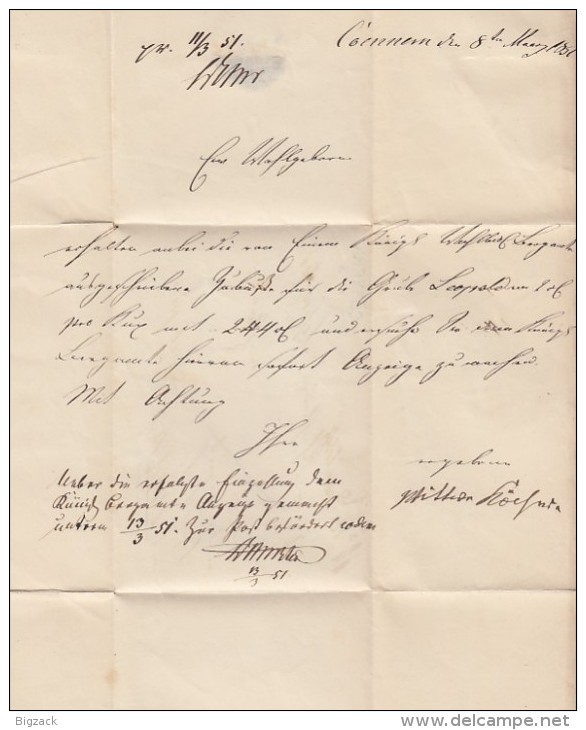 pr. 11/3 51.
Coennern den 8ten Maerz 1851
Ew Wohlgeboren
erhalten anbei die von Einem Königl Wohllöbl Bergamte
ausgeschriebene Zubuße für die Grube Leopoldine 2 rℓ
pro Kux mit 244 rℓ und ersuche Sie einem Königl
Bergamte hiervon sofort Anzeige zu machen.
Mit Achtung
Ihre
ergebene
Wittwe
Ueber die erfolgte Einzahlung dem
Königl Bergamte Anzeige gemacht
unterm 13/3 51. Zur Post befördert
13/3 51
Bigzack
www.delcampe.net